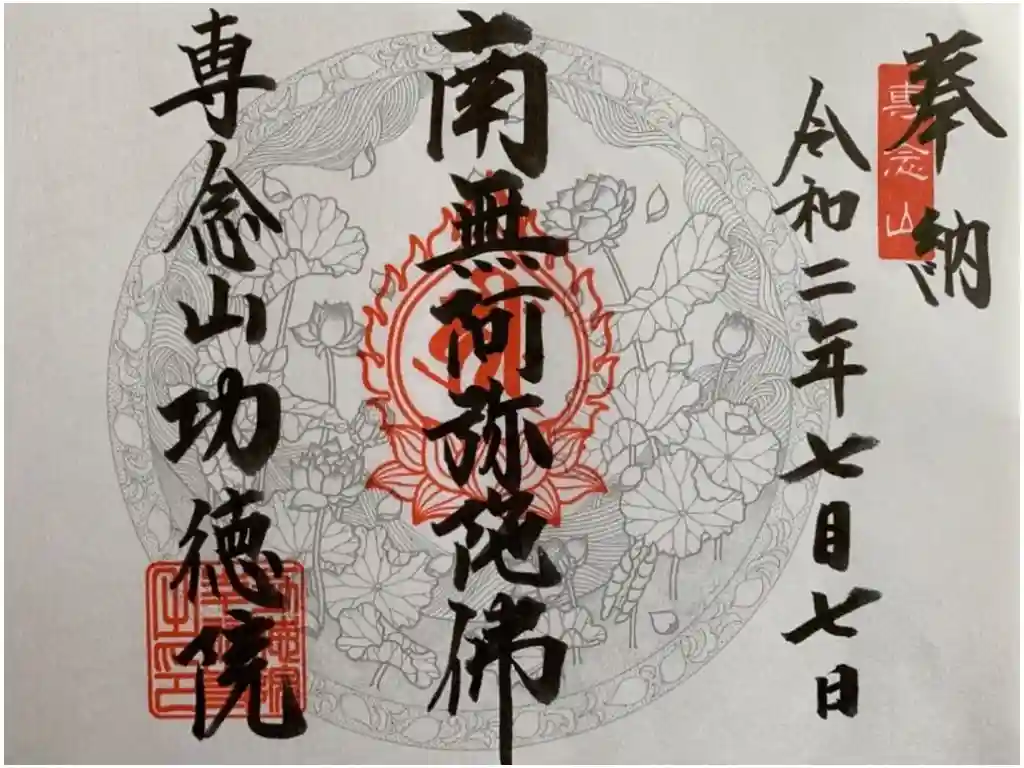 奉納
專念山
令和二年七月七日
南無阿弥陀佛
専念山功徳院